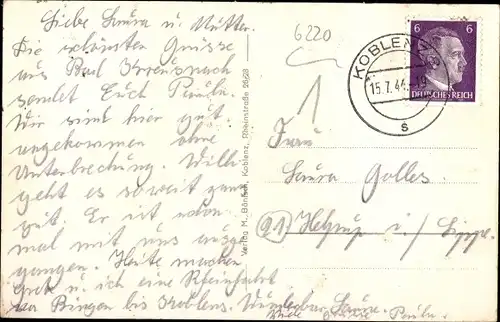 Liebe Laura u. Mutter.
Die schönsten Grüsse
aus Bad Kreuznach
sendet Euch Paula.
Wir sind hier gut
angekommen ohne
Unterbrechung. Willi
geht es soweit ganz
gut. Er ist schon
mal mit uns ausge
gangen. Heute machen
u. ich eine Rheinfahrt
von Bingen bis Koblenz. Wunderbar
Paula.
Verlag M. Bönisch, Koblenz, Rheinstraße 26/28
6220
1
KOBLENZ
15.7.44
s
6 6
DEUTSCHES REICH
Frau
Laura Golles
(21) Helpup i./ Lippe.